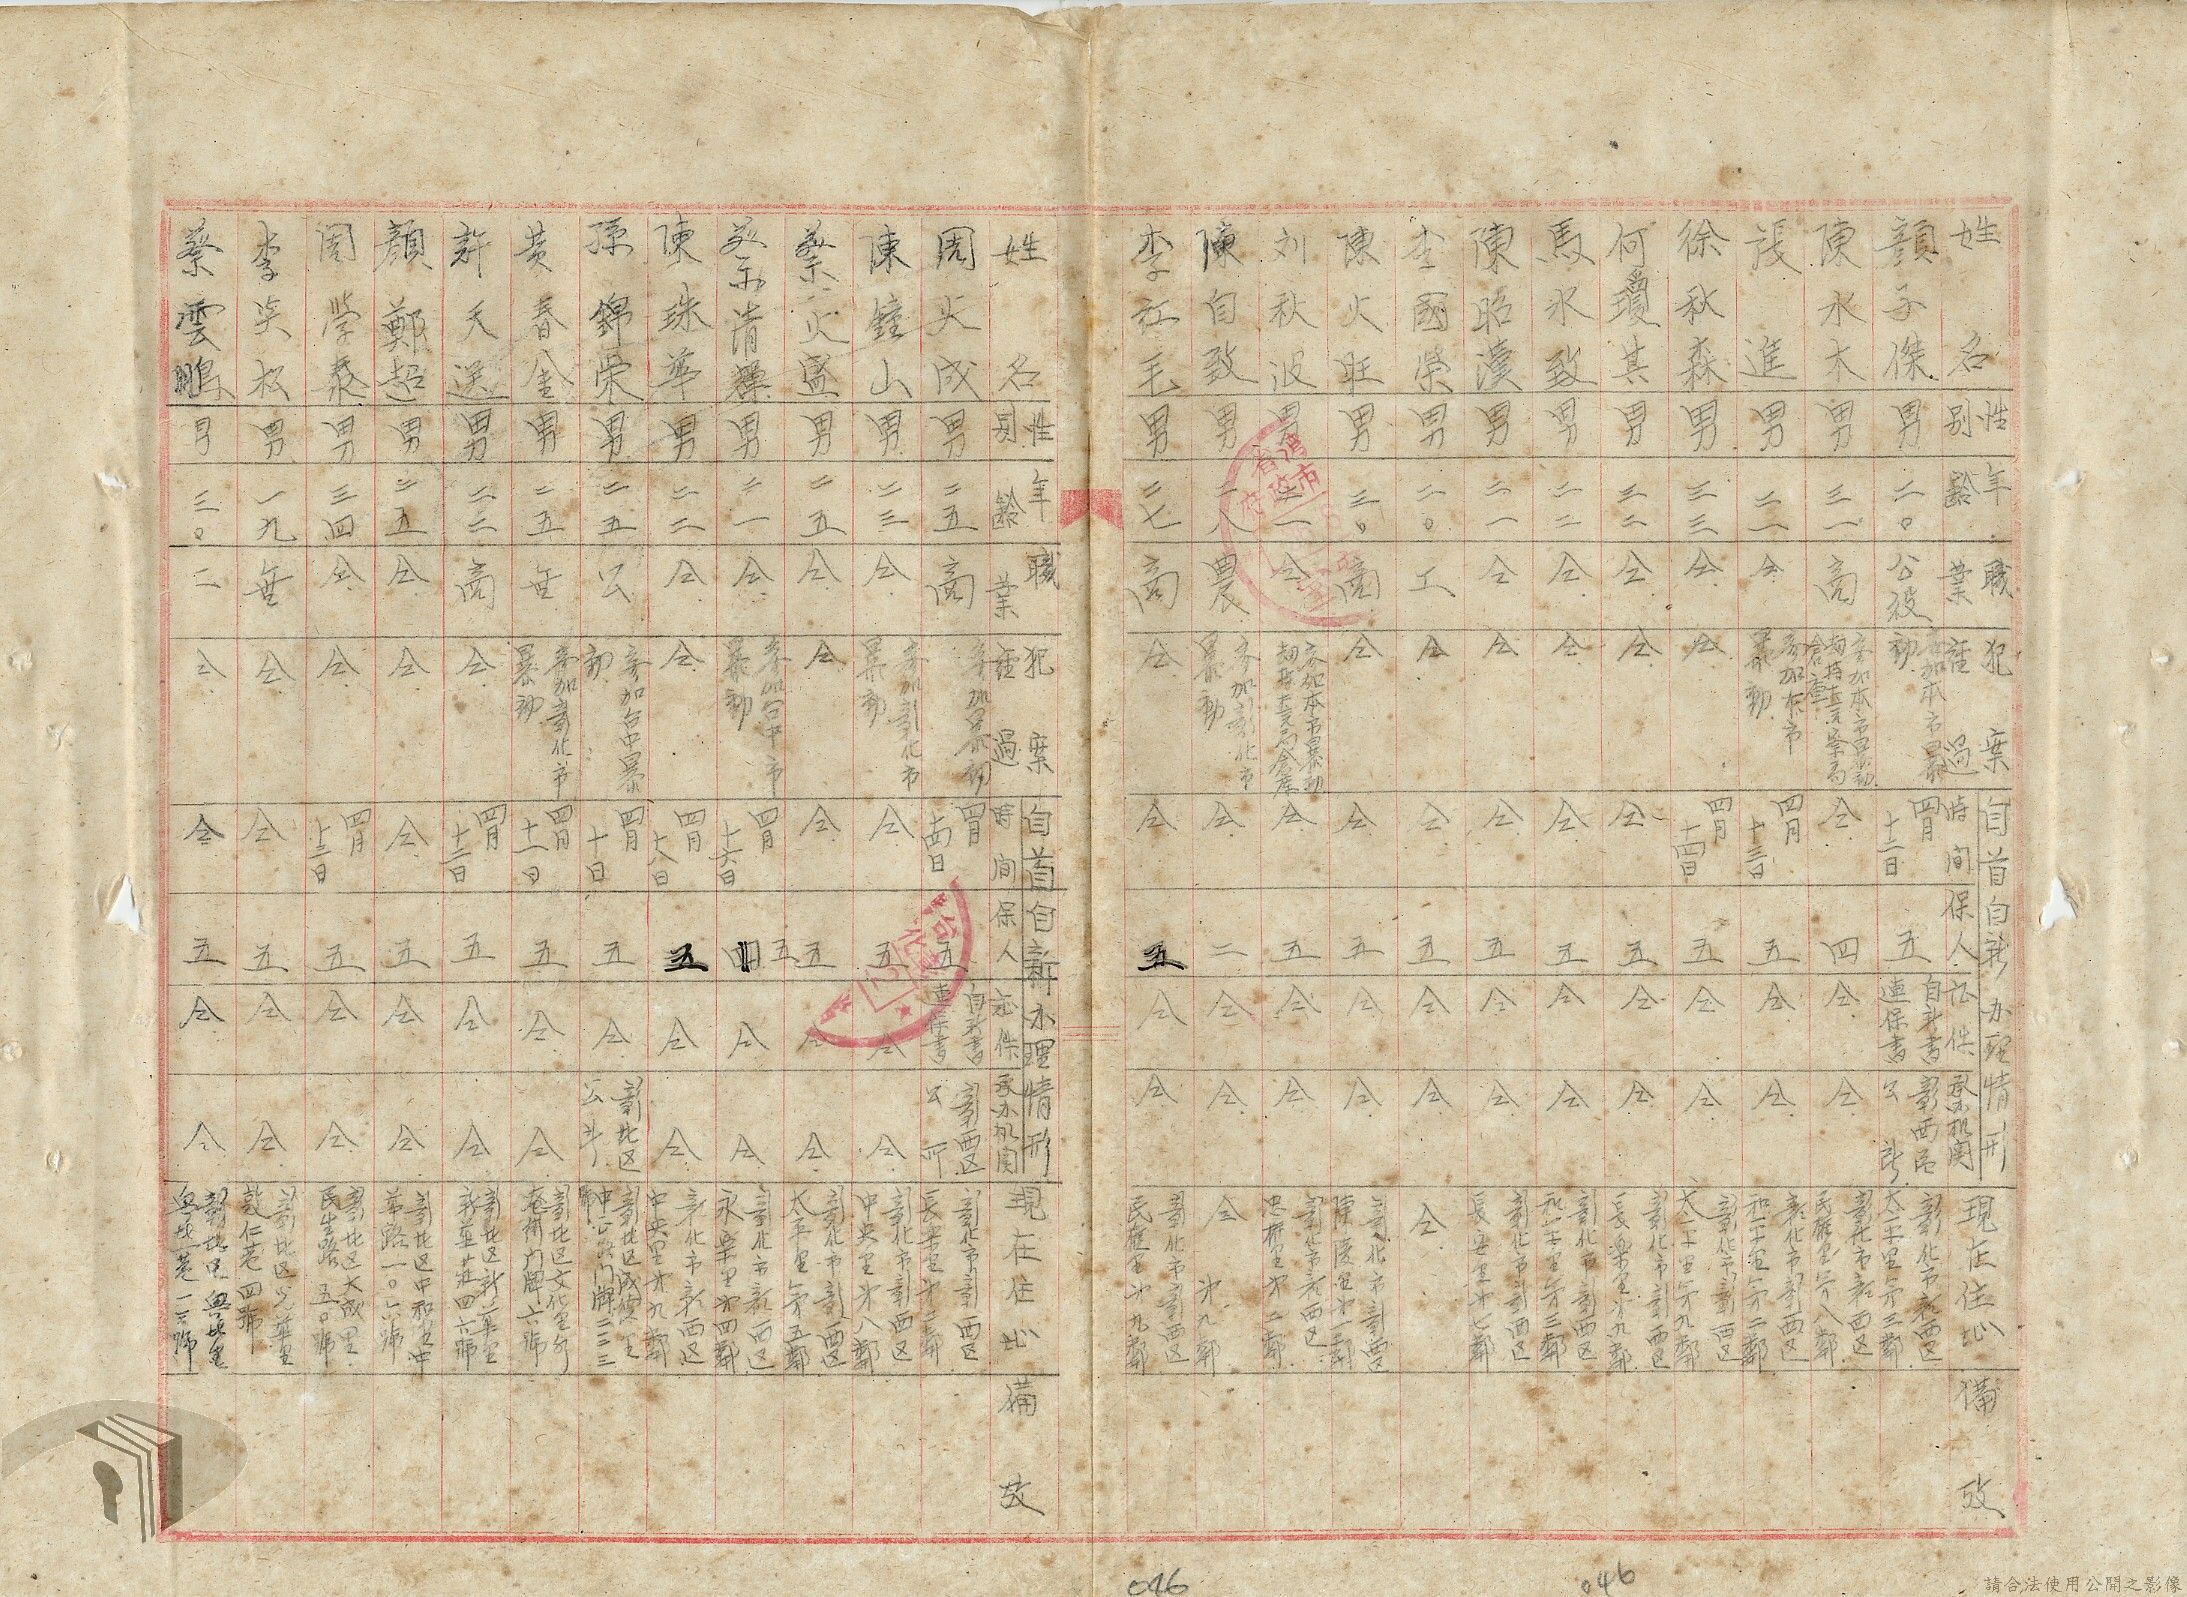 姓名 性別 年齡 職業 犯罪過 時間 保人 証件 承办机関 現在住址 備攷
自首自新办理情形
顏子傑 男 二〇 公役 参加本市暴動 四月十二日 五 自新書連保書 彰西区公所 彰化市彰西区太平里第三鄰
陳水木 男 三一 商 仝 四 仝 仝 彰化市彰西区民權里第八鄰
張進 男 二一 仝 参加本市暴動 四月十三日 五 仝 仝 彰化市彰西区和平里第二鄰
徐秋森 男 三三 仝 仝 四月十四日 五 仝 仝 彰化市彰西区太平里第九鄰
何瓊其 男 三二 仝 仝 仝 五 仝 仝 彰化市彰西区長楽里第九鄰
馬水致 男 二二 仝 仝 仝 五 仝 仝 彰化市彰西区和平里第三鄰
陳昭漢 男 二一 仝 仝 仝 五 仝 仝 彰化市彰西区長安里第七鄰
李國榮 男 二〇 工 仝 仝 五 仝 仝 仝
陳火旺 男 三〇 商 仝 仝 五 仝 仝 彰化市彰西区陳陵里第一鄰
刘秋波 男 三一 仝 仝 五 仝 仝 彰化市彰西区忠權里第二鄰
陳自致 男 二八 農 参加彰化市暴動 仝 二 仝 仝 仝 第九鄰
李紅毛 男 二七 商 仝 仝 五 仝 仝 彰化市彰西区民權里第九鄰
姓名 性別 年齡 職業 犯罪過 時間 保人 証件 承办机関 現在住址 備攷
自首自新办理情形
周火成 男 二五 商 参加暴動 四月十四日 五 自新書連保書 彰西区公所 彰化市彰西区長楽里第二鄰
陳鐘山 男 二三 仝 参加彰化市暴動 仝 五 仝 仝 彰化市彰西区中央里第八鄰
蔡火盛 男 二五 仝 仝 仝 五 仝 仝 彰化市彰西区太平里第五鄰
蔡清 男 二一 仝 参加台中市暴動 四月十六日 四 五 仝 仝 彰化市彰西区永楽里第四鄰
陳珠華 男 二二 仝 仝 四月十八日 五 仝 仝 彰化市彰西区中央里第九鄰
孫錦榮 男 二五 公 参加台中暴動 四月十日 五 仝 彰北区公所 彰北区成德里中正路门牌二二三號
黄春金 男 二五 無 参加彰化市暴動 四月十一日 五 仝 仝 彰北区文化里
许天送 男 二二 商 仝 四月十二日 五 仝 仝 彰北区新華里
顏鄭超 男 二五 仝 仝 仝 五 仝 仝 彰北区中和里中華路一〇六號
周学泰 男 三四 仝 仝 四月十三日 五 仝 仝 彰北区大成里民生路五〇號
李炎松 男 一九 無 仝 仝 五 仝 仝 彰北区光華里敦仁巷四號
蔡雲鵬 男 三〇 工 仝 仝 五 仝 仝 彰北区興北里興北巷一六號
046
046
請合法使用公開之影像